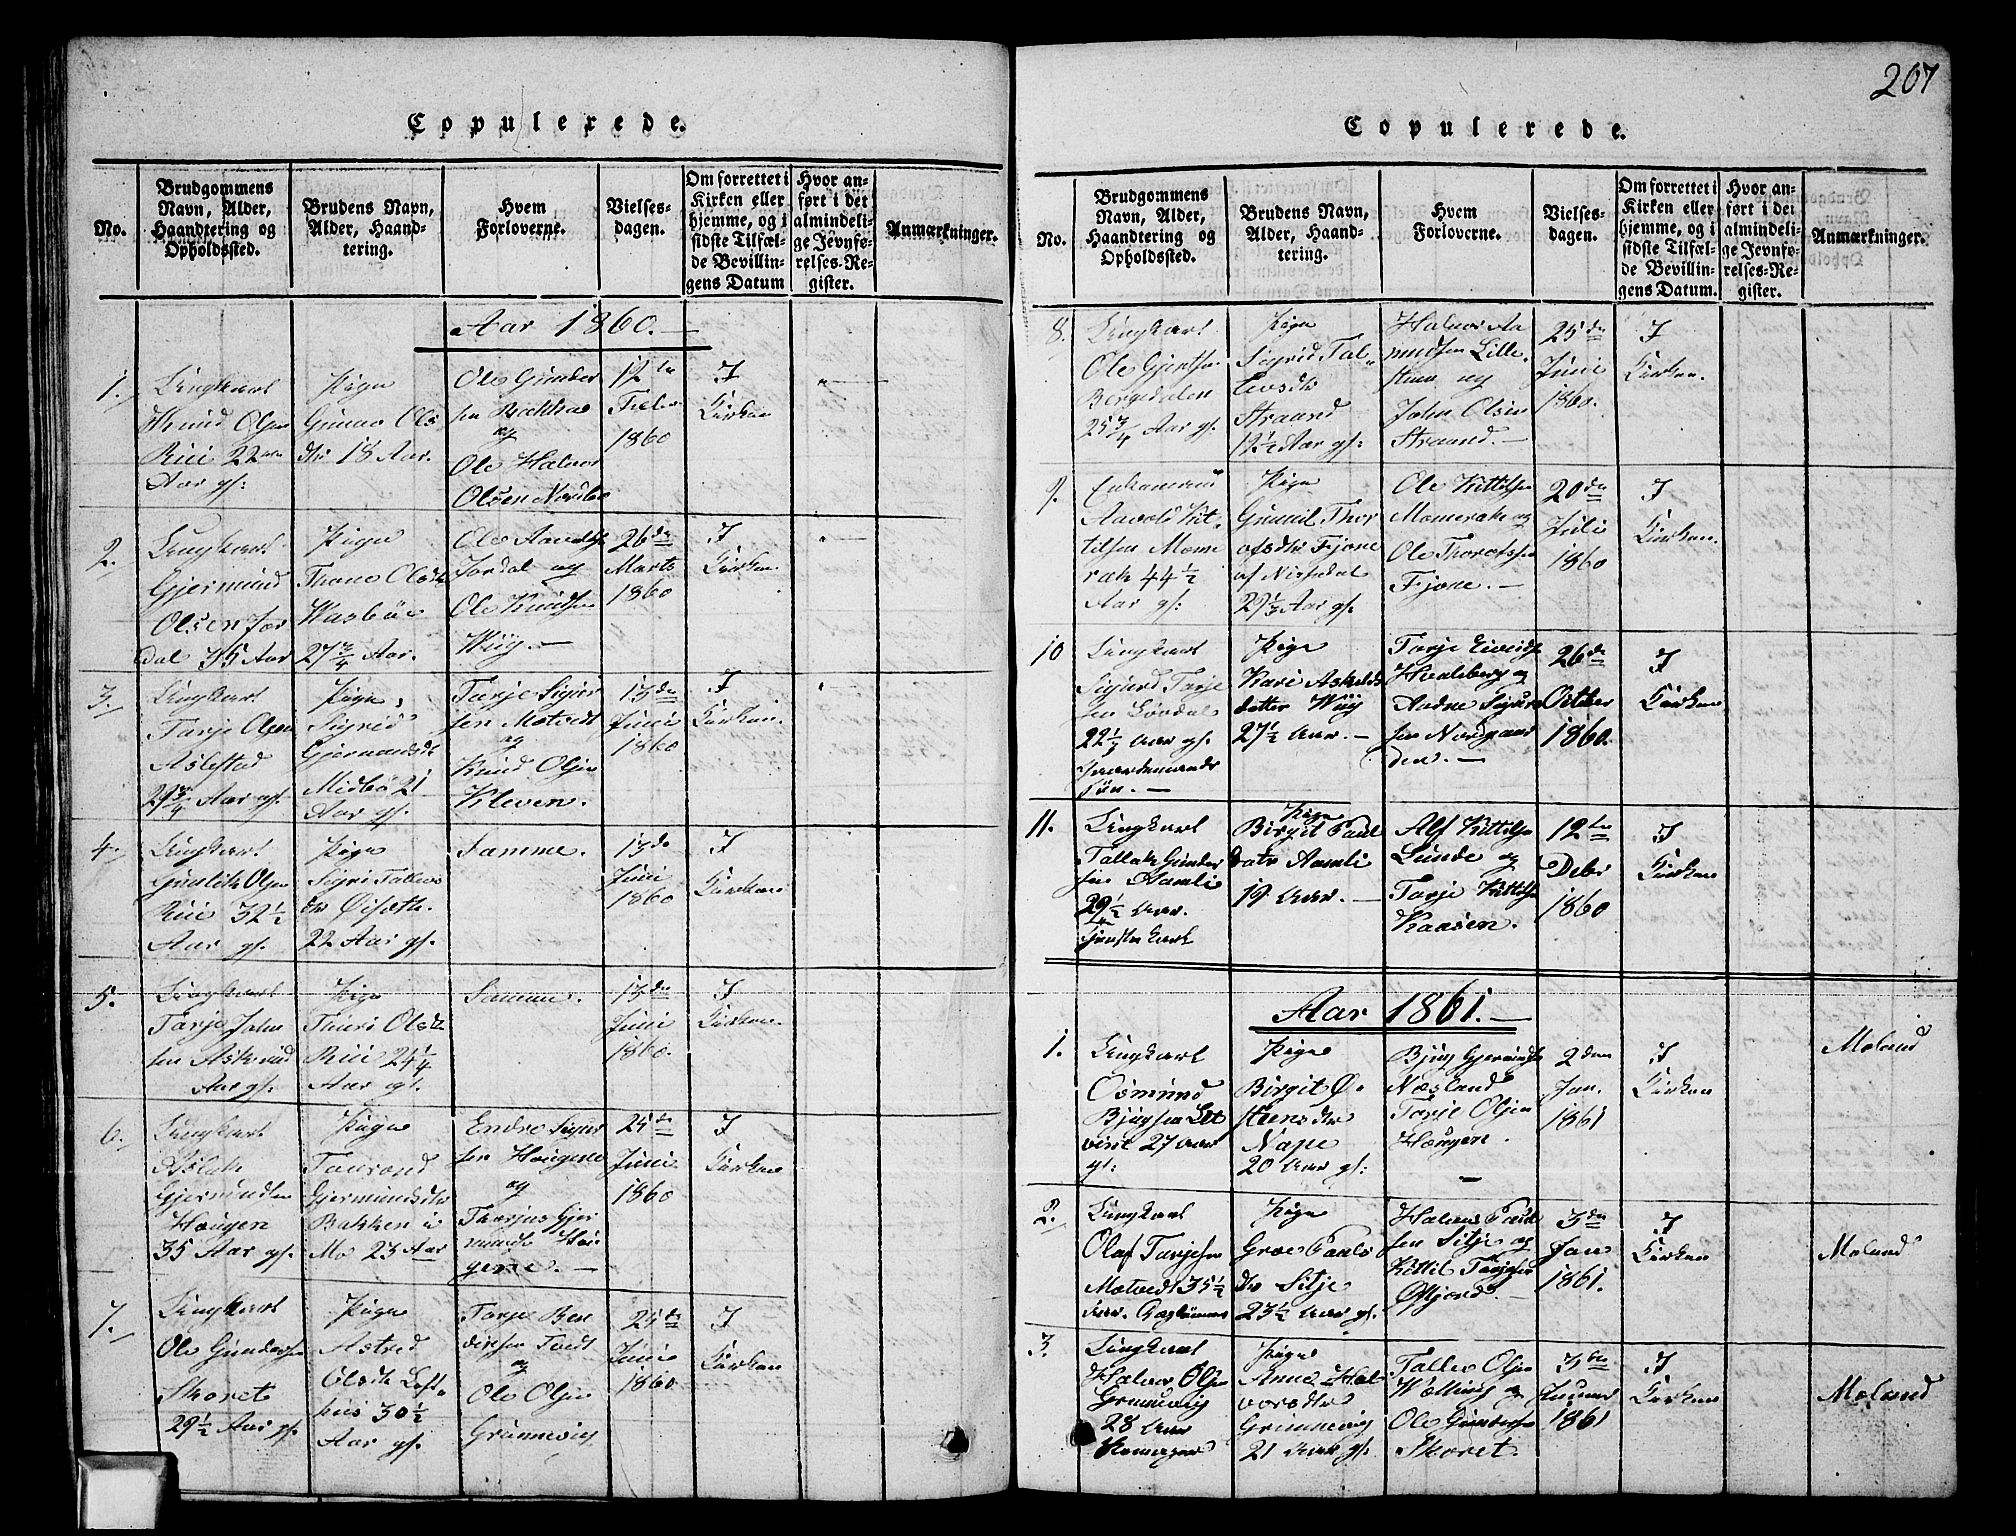 Copulerede.
No.
Brudgommens
Navn, Alder,
Haandtering og
Opholdssted.
Brudens Navn,
Alder, Haand-
tering.
Hvem
Forloverne.
Vielses-
dagen.
Om forrettet i
Kirken eller
hjemme, og i
sidste Tilfæl-
de Bevillin-
gens Datum
Hvor an-
ført i det
almindeli-
ge Jevnfø-
relses-Re-
gister.
Anmærkninger.
Aar 1860.
1.
Ungkarl
Knud Olsen
Rui 22
Aar gl:
Pige
Gunor Ols
dtr 18 Aar.
Ole Gunder
sen
og
Ole Halvor
Olsen Nordbø
12te
Febr
1860
I
Kirken
2.
Ungkarl
Gjermund
Olsen Jor
dal 35 Aar
Pige
Thone Olsdtr
Wasbøe
27 3/4 Aar.
Ole
Jordal og
Ole Knudsen
Wiig.
26de
Marts
1860
I
Kirken
3.
Ungkarl
Tarje Olsen
Aslestad
29 3/4 Aar gl.
Pige
Sigrid
Midbö 21
Aar gl.
Tarje Sigur
sen Motvedt
og
Knud Olsen
Kleven.
13de
Juni
1860
I
Kirken
4.
Ungkarl
Gunlek Olsen
Rui 32 1/2
Aar gl.
Pige
Sigri Tallevs
dtr Øisæth.
22 Aar gl.
Samme.
13de
Juni
1860
I
Kirken
5.
Ungkarl
Tarje John
sen
Aar gl.
Pige
Thuri Olsdtr
Rui 24 1/4
Aar gl.
Samme.
13de
Juni
1860.
I
Kirken
6.
Ungkarl
Aslak
Gjermundsen
Hougen
35 Aar gl.
Pige
Gjermundsdtr
Bakken i
Mo 23 Aar
Endre Sigur
sen Hougene
og
Thorjus Gjer
mundsen Hou
gene.
25de
Juni
1860
I
Kirken
7.
Ungkarl
Ole Gundersen
Skoret
29 1/2 Aar gl.
Pige
Astred
Olsdtr Loft
huus 30 1/2
Aar gl.
Tarje Ben
dixsen Toedt
og
Ole Olsen
Grunnevig
25de
Juni
1860
I
Kirken
207
Copulerede.
No.
Brudgommens
Navn, Alder,
Haandtering og
Opholdssted.
Brudens Navn,
Alder, Haand-
tering.
Hvem
Forloverne.
Vielses-
dagen.
Om forrettet i
Kirken eller
hjemme, og i
sidste Tilfæl-
de Bevillin-
gens Datum.
Hvor an-
ført i det
almindeli-
ge Jevnfø-
relses-Re-
gister.
Anmærkninger.
8.
Ungkarl
Ole
Bergedalen
25 3/4 Aar gl.
Pige
Sigrid Tal-
levsdtr
Straand
Aar gl:
Halvor Aa
mundsen Lille-
stuen og
John Olsen
Straand.
25de
Juni
1860.
I
Kirken.
9.
Enkemand
Aavold Kit-
tilsen Mome
rak 44 1/2
Aar gl:
Pige
Gunnil Thor
ofsdtr Fjone
af Nissedal
29 1/3 Aar gl.
Ole Kittilsen
Momerak og
Ole
Fjone.
20de
Juli
1860
I
Kirken.
10
Ungkarl
Sigurd Tarje
sen
22 1/2 Aar gl.
Gaardmands
søn.
Pige
Kari Askilds
datter Wiig
27 1/2 Aar.
Tarje Eivinds
Hvalsberg og
Aadne Sigurd
sen Nordgaar
den.
26de
October
1860.
I
Kirken
11.
Ungkarl
Tallak Gunder
sen Aamli
29 1/2 Aar.
Pige
Birgit Paul
datr Aamli
19 Aar.
Alf Kittilsen
Lunde og
Tarje Kittilsen
Kaasen.
12te
Debr
1860
I
Kirken
Aar 1861.
1.
Ungkarl
Osmund
Bjugsen
27 Aar
gl:
Pige
Birgit Ø-
steensdtr
Nape
20 Aar gl:
Bjug Gjermundsen
Næsland
Tarje Olsen
Hougen.
2den
Jan.
1861
I
Kirken
Moland
2.
Ungkarl
Olaf Tarjesen
Motvedt 35 1/2
Aar.
Pige
Groe Pauls
dtr Sitje
23 1/2 Aar gl.
Halvor Paul
sen Sitje og
Kittil Tarjesen
Ofjord.
3de
Jan
1861.
I
Kirken
Moland
3.
Ungkarl
Halvor Olsen
Grunnevig
28 Aar
Pige
Anne Hal
vorsdtr
Grunnevig
21 Aar gl.
Tallev Olsen
og
Ole Gundersen
Skoret.
3de
Januar
1861
I
Kirken
Moland